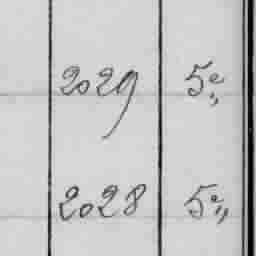 2029 5e„
2028 5e„